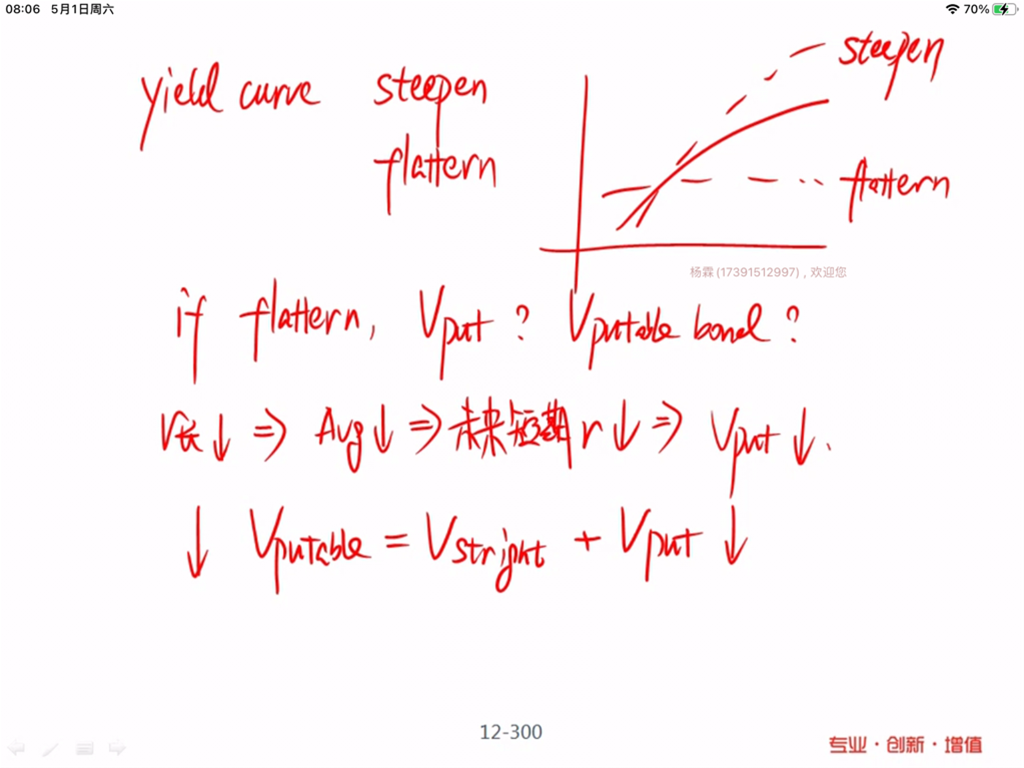 08:06 5月1日周六 70%
yield curve steepen
flattern
steepen
flattern
杨霖(17391512997),欢迎您
if flattern, Vput ? Vputable bond ?
r长↓ ⇒ Avg↓ ⇒ 未来短期r↓ ⇒ Vput↓.
↓ Vputable = Vstright + Vput↓
12-300
专业·创新·增值